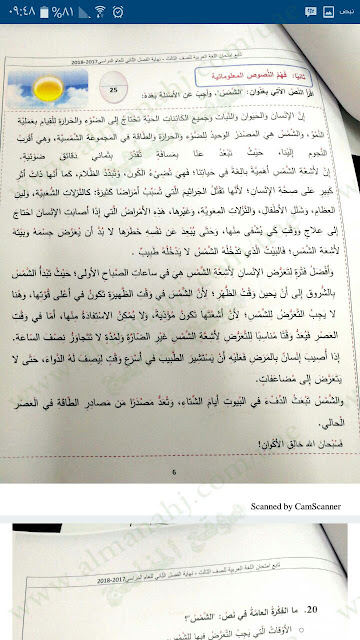 ٠٩:٤٨
نبض
تابع امتحان اللغة العربية للصف الثالث - نهاية الفصل الثاني للعام الدراسي 2017-2018
ثانيًا: فَهْمُ النُّصوص المعلوماتية
اقرأ النّصّ الآتي بعنوان: "الشّمْسُ"، وأجبْ عن الأسئلة بَعْدَهُ:
25
إنّ الإنسان والحيوان والنّبات وجميع الكائنات الحيّة تحتاجُ إلى الضّوْءِ والحرارة للقيام بعمليّة
النّموّ، والشّمْسُ هي المصْدرُ الوحيدُ للضّوْءِ والحرارة والطّاقة في المجموعة الشّمْسيّة، وهي أقربُ
النّجوم إليْنا، حيْثُ تبْعدُ عنا بمسافة تُقدّرُ بثماني دقائق ضوْئية.
إنّ لأشعّة الشّمْس أهميّة بالغة في حياتنا؛ فهي تُضيءُ الكوْن، وتُبدّدُ الظّلام، كما أنّها ذاتُ أثر
كبير على صحّة الإنسان؛ لأنّها تقْتلُ الجراثيم الّتي تُسبّبُ أمْراضًا كثيرة: كالنّزلات الشّعبيّة، ولين
العظام، وشلل الأطْفال، والنّزلات المعويّة، وغيْرها، هذه الأمْراضُ الّتي إذا أصابت الإنسان احْتاج
إلى علاج ووقْتٍ كيْ يُشْفى منْها، وحتّى يُبْعد عنْ نفْسه خطرها لا بُدّ أن يُعرّض جسْمهُ وبيْتهُ
لأشعّة الشّمْس؛ فالبيْتُ الّذي تدْخُلُهُ الشّمْسُ لا يدْخُلُهُ طبيبٌ.
وأفْضلُ فتْرة لتعرّض الإنسان لأشعّة الشّمْس هي في ساعات الصّباح الأولى؛ حيْثُ تبْدأ الشّمْسُ
بالشّروق إلى أنْ يحين وقْتُ الظّهْر؛ لأنّ الشّمْس في وقْت الظّهيرة تكونُ في أعْلى قوّتها، وهُنا
لا يجبُ التّعرّضُ للشّمْس؛ لأنّ أشعّتها تكونُ مُؤْذية، ولا يُمْكنُ الاسْتفادةُ منْها، أمّا في وقْت
العصْر فيُعدّ وقْتًا مُناسبًا للتّعرّض لأشعّة الشّمْس غيْر الضّارّة ولمُدّة لا تتجاوزُ نصْف السّاعة.
إذا أُصيب إنْسانٌ بالمرض فعليْه أنْ يسْتشير الطّبيب في أسْرع وقْتٍ ليصف لهُ الدّواء، حتّى لا
يتعرّض إلى مُضاعفات.
والشّمْسُ تبْعثُ الدّفْءَ في البيوت أيّام الشّتاء، وتُعدّ مصْدرًا منْ مصادر الطّاقة في العصْر
الحالي.
فسُبْحان الله خالق الأكْوان!
6
Scanned by CamScanner
تابع امتحان اللغة العربية للصف الثالث - نهاية الفصل الثاني للعام الدراسي 2017-2018
20. ما الفكْرةُ العامّةُ في نصّ: "الشّمْسُ"؟
الأوْقاتُ الّتي يجبُ التّعرّضُ فيها للشّمْس